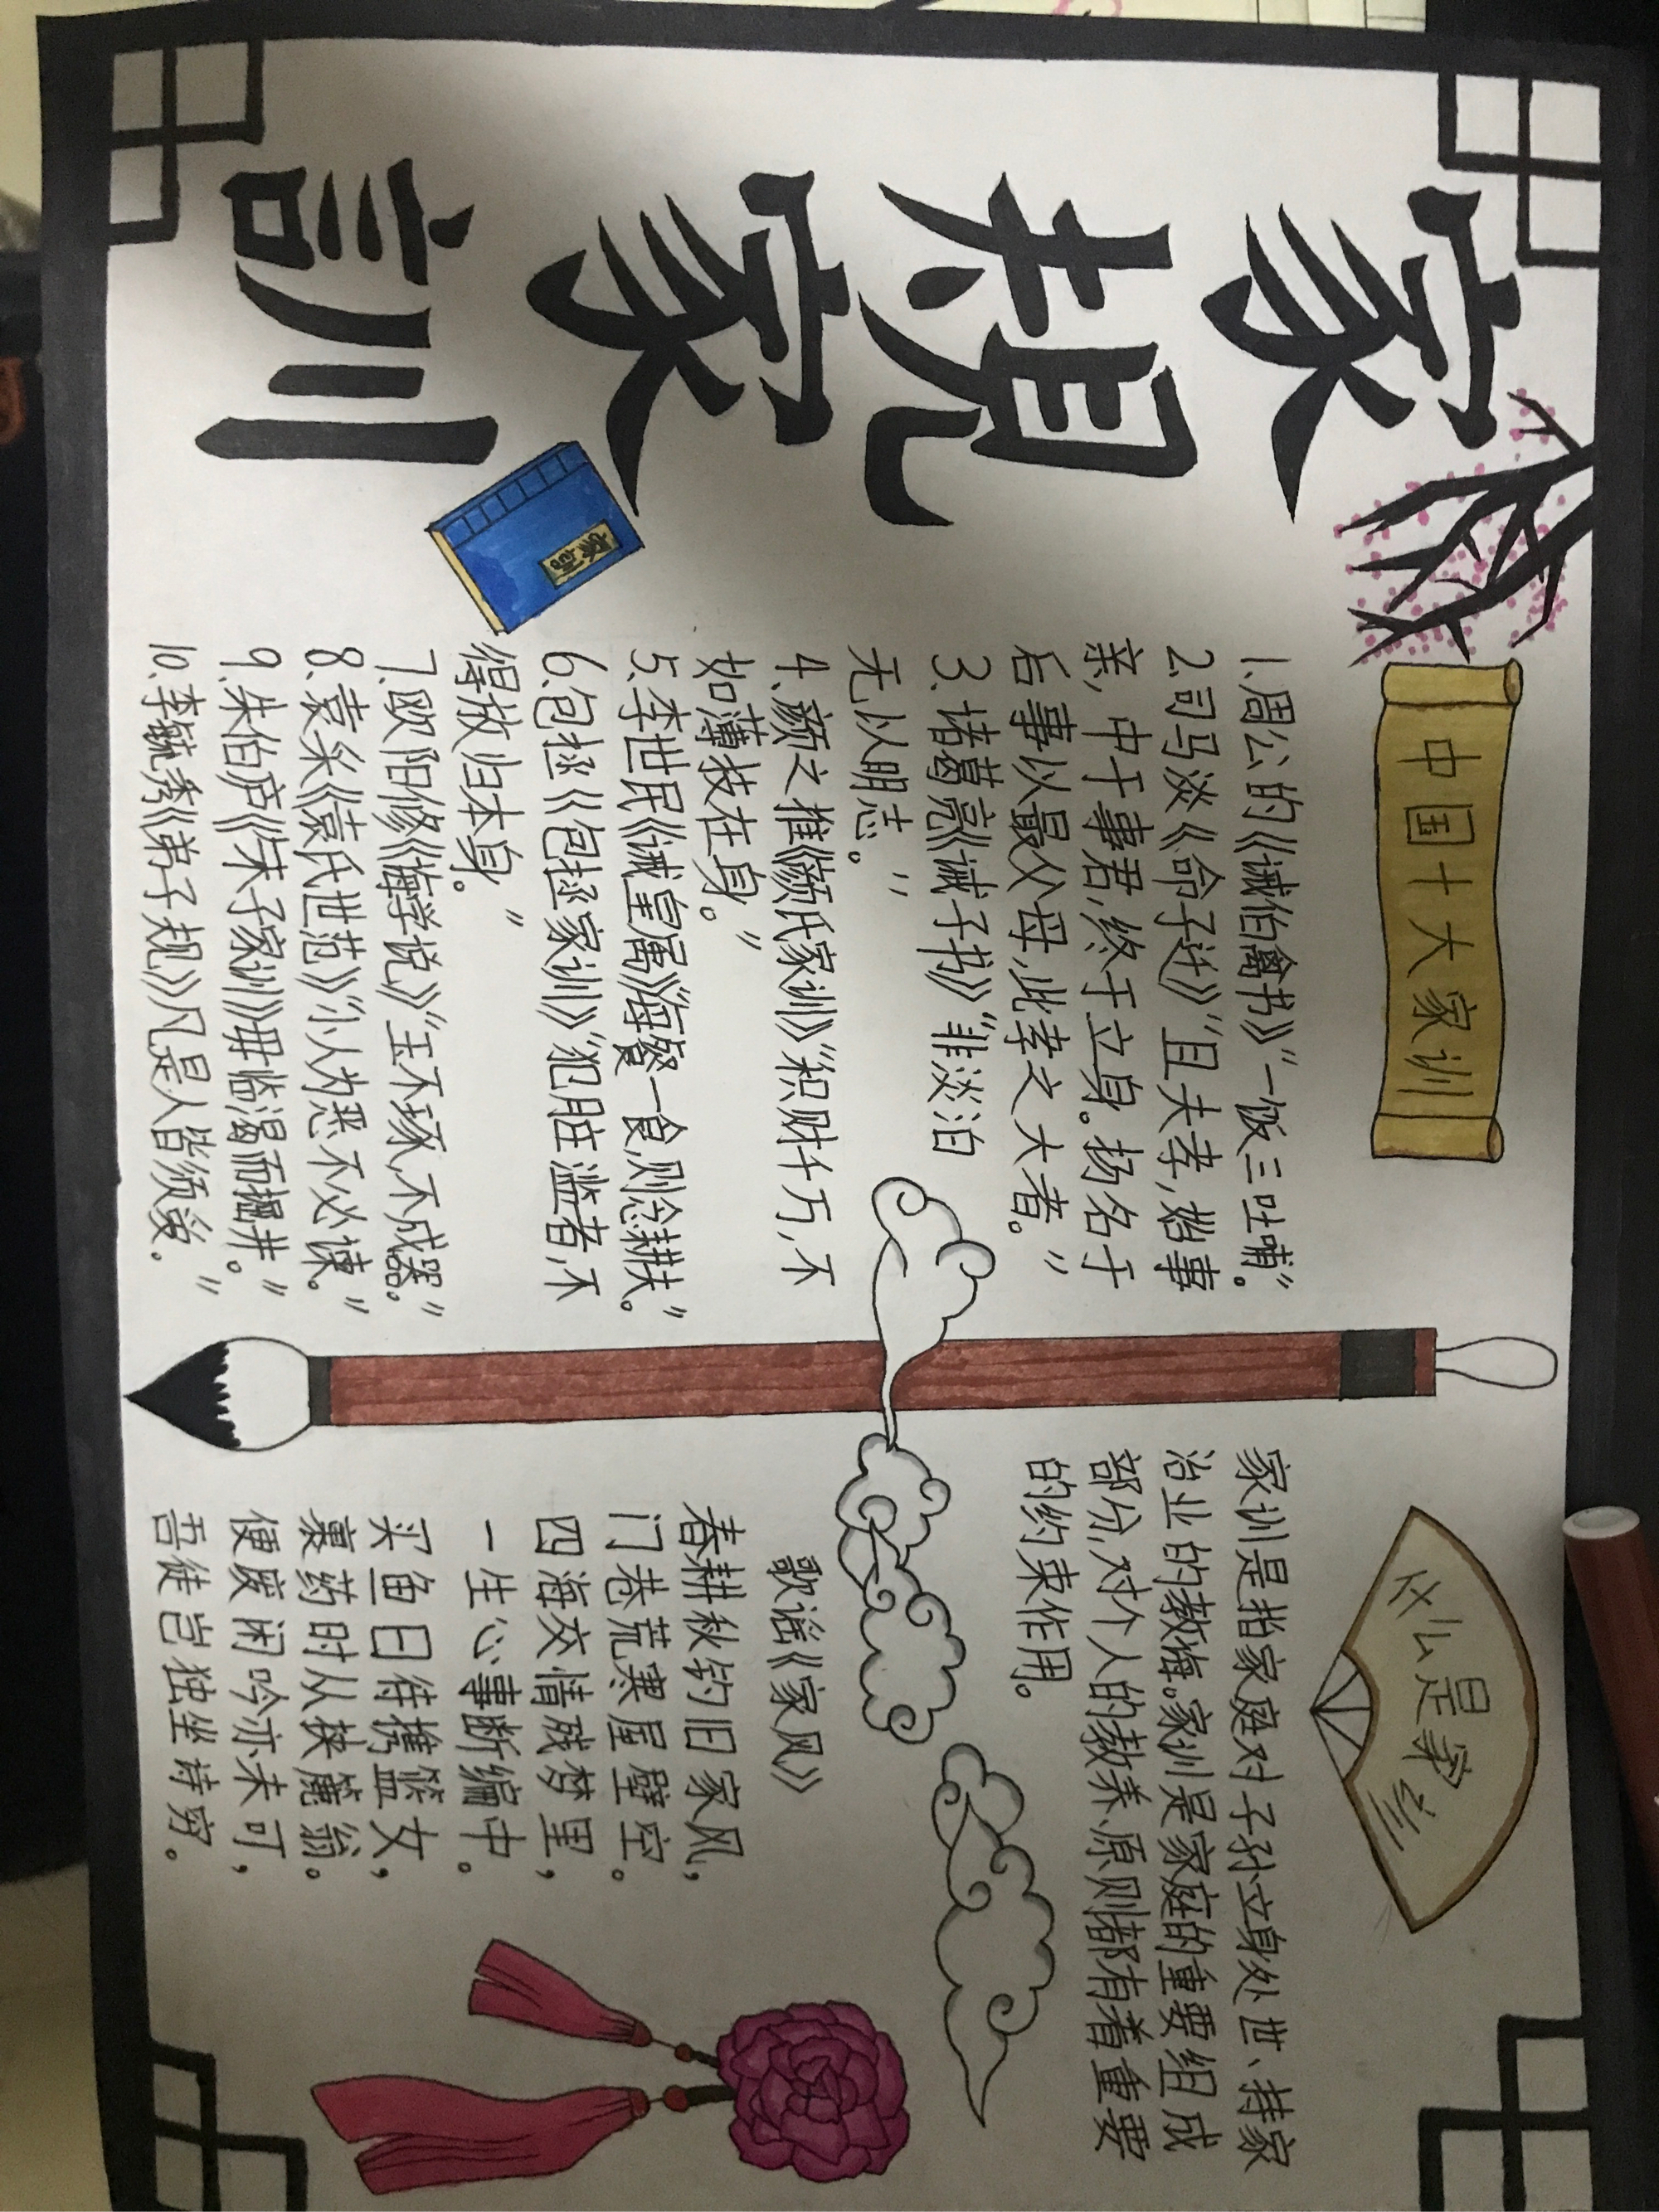 家規家訓
家訓
中国十大家训
1.周公的《诫伯禽书》“一饭三吐哺。”
2.司马谈《命子迁》“且夫孝,始事
亲,中于事君,终于立身。扬名于
后事以最父母,此孝之大者。”
3.诸葛亮《诫子书》“非淡泊
无以明志。”
4.颜之推《颜氏家训》“积财千万,不
如薄技在身。”
5.李世民《诫皇属》“每餐一食,则念耕夫。”
6.包拯《包拯家训》“犯脏滥者,不
得放归本身。”
7.欧阳修《诲学说》“玉不琢,不成器。”
8.袁采《袁氏世范》“小人为恶不必谏。”
9.朱伯庐《朱子家训》“毋临渴而掘井。”
10.李毓秀《弟子规》凡是人皆须爱。”
什么是家训
家训是指家庭对子孙立身处世、持家
治业的教诲。家训是家庭的重要组成
部分,对个人的教养、原则都有着重要
的约束作用。
歌谣《家风》
春耕秋钓旧家风,
门巷荒寒屋壁空。
四海交情残梦里,
一生心事断编中。
买鱼日待携篮女,
裹药时从挟簏翁。
便废闲吟亦未可,
吾徒岂独坐诗穷。